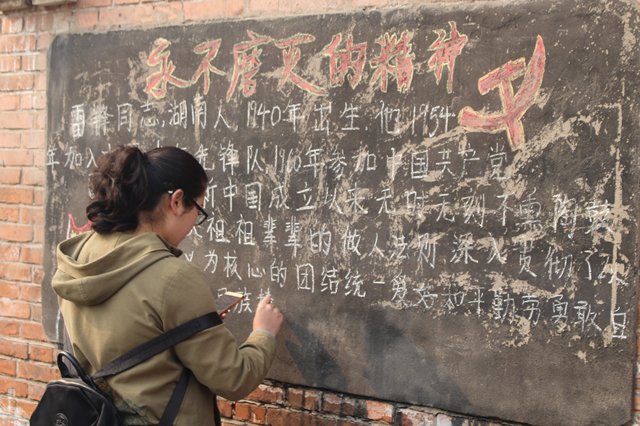 永不磨灭的精神
雷锋同志,湖南人,1940年出生.他1954
年加入先锋队1960年参加中国共产党
中国成立以来无时无刻不熏陶鼓
祖祖辈辈的做人法则,深入贯彻了
为核心的团结统一爱好和平勤劳勇敢自
族